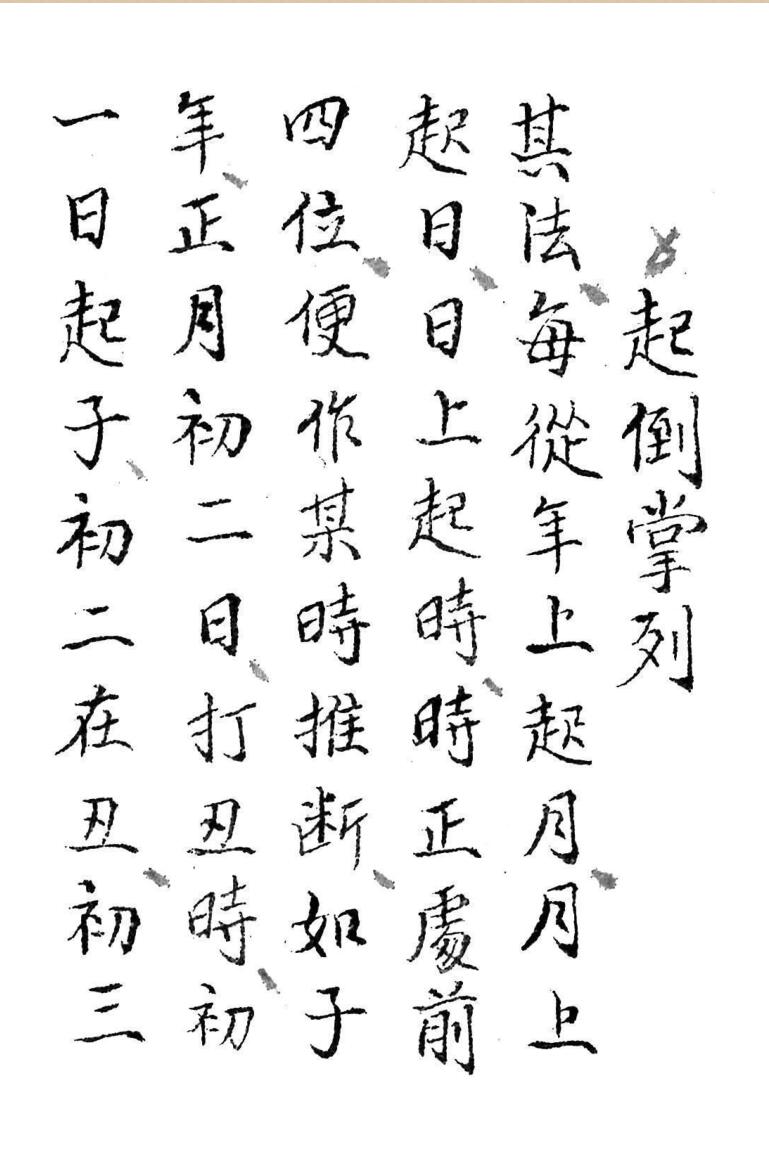 起倒掌列
其法每從年上起月月上
起日日上起時時正處前
四位便作某時推断如子
年正月初二日打丑時初
一日起子初二在丑初三